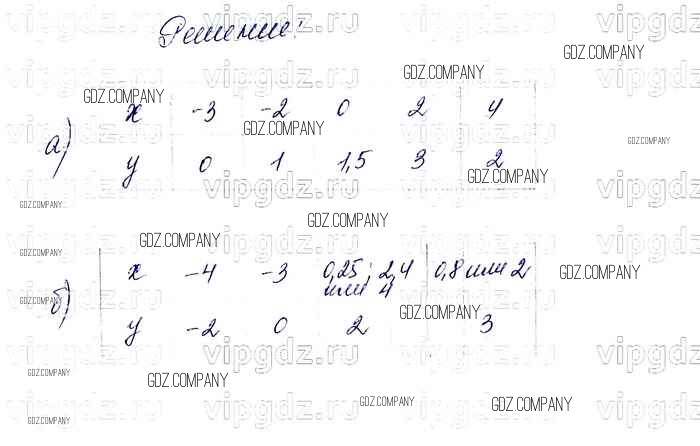 Решение:
а)
x -3 -2 0 2 4
y 0 1 1,5 3 2
б)
x -4 -3 0,25; 2,4 или 4 0,8 или 2
y -2 0 2 3
vipgdz.ru
GDZ.COMPANY